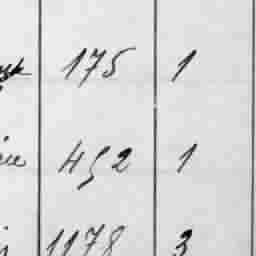 175 1
452 1
1178 3